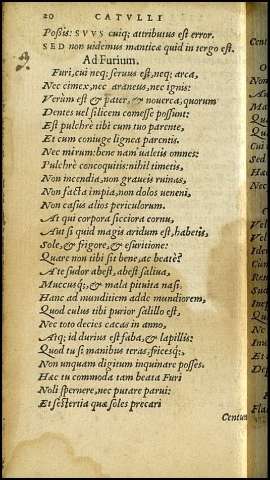 20 CATVLLI
Poßis: SVVS cuiq; attributus est error.
SED non uidemus manticæ quid in tergo est.
Ad Furium.
Furi, cui neq; seruus est, neq; arca,
Nec cimex, nec araneus, nec ignis:
Verùm est & pater, & nouerca, quorum
Dentes uel silicem comesse possunt:
Est pulchrè tibi cum tuo parente,
Et cum coniuge lignea parentis.
Nec mirum: bene nam ualetis omnes:
Pulchrè concoquitis: nihil timetis,
Non incendia, non graueis ruinas,
Non facta impia, non dolos ueneni,
Non casus alios periculorum.
At qui corpora sicciora cornu,
Aut si quid magis aridum est, habetis,
Sole, & frigore, & esuritione:
Quare non tibi sit bene, ac beatè?
A te sudor abest, abest saliua,
Muccusq;, & mala pituita nasi.
Hanc ad munditiem adde mundiorem,
Quod culus tibi purior salillo est,
Nec toto decies cacas in anno,
Atq; id durius est faba, & lapillis:
Quod tu si manibus teras, fricesq;,
Non unquam digitum inquinare posses.
Hæc tu commoda tam beata Furi
Noli spernere, nec putare parui:
Et sestertia quæ soles precari
Centum